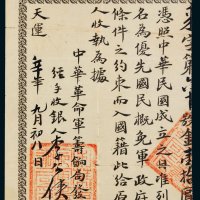 憑照中華民國成立之日准列
名為優先國民概免軍政府
條件之約束而入國籍此給原
人收執為據
中華革命軍籌餉局發
經手收銀人李公俠
天運 辛亥年 九月初八日